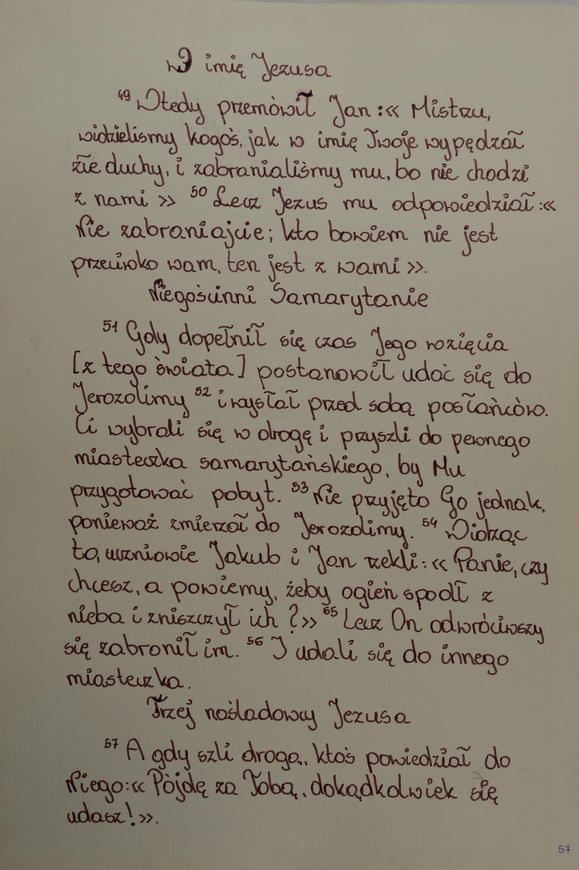 W imię Jezusa
49 Wtedy przemówił Jan: « Mistrzu,
widzieliśmy kogoś, jak w imię Twoje wypędzał
złe duchy, i zabranialiśmy mu, bo nie chodzi
z nami » 50 Lecz Jezus mu odpowiedział: «
Nie zabraniajcie; kto bowiem nie jest
przeciwko wam, ten jest z wami ».
Niegościnni Samarytanie
51 Gdy dopełnił się czas Jego wzięcia
[z tego świata] postanowił udać się do
Jerozolimy 52 i wysłał przed sobą posłańców.
Ci wybrali się w drogę i przyszli do pewnego
miasteczka samarytańskiego, by Mu
przygotować pobyt. 53 Nie przyjęto Go jednak,
ponieważ zmierzał do Jerozolimy. 54 Widząc
to, uczniowie Jakub i Jan rzekli: « Panie, czy
chcesz, a powiemy, żeby ogień spadł z
nieba i zniszczył ich ? » 55 Lecz On odwróciwszy
się zabronił im. 56 I udali się do innego
miasteczka.
Trzej naśladowcy Jezusa
57 A gdy szli drogą, ktoś powiedział do
Niego: « Pójdę za Tobą, dokądkolwiek się
udasz! ».
57